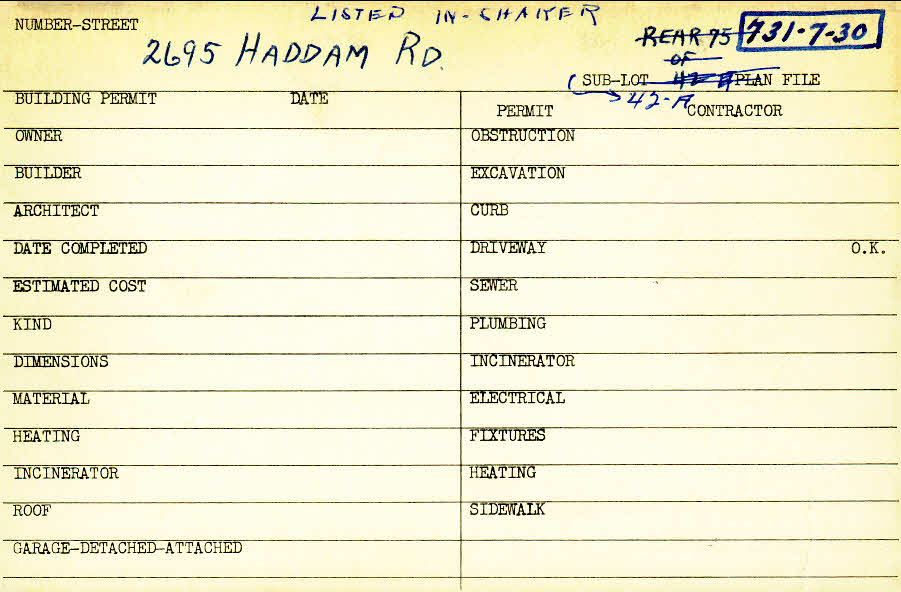 LISTED IN-SHAKER
NUMBER-STREET
2695 HADDAM RD.
REAR 75
731-7-30
OF
SUB-LOT 42 A PLAN FILE
42-A
BUILDING PERMIT DATE
PERMIT CONTRACTOR
OWNER
OBSTRUCTION
BUILDER
EXCAVATION
ARCHITECT
CURB
DATE COMPLETED
DRIVEWAY O.K.
ESTIMATED COST
SEWER
KIND
PLUMBING
DIMENSIONS
INCINERATOR
MATERIAL
ELECTRICAL
HEATING
FIXTURES
INCINERATOR
HEATING
ROOF
SIDEWALK
GARAGE-DETACHED-ATTACHED